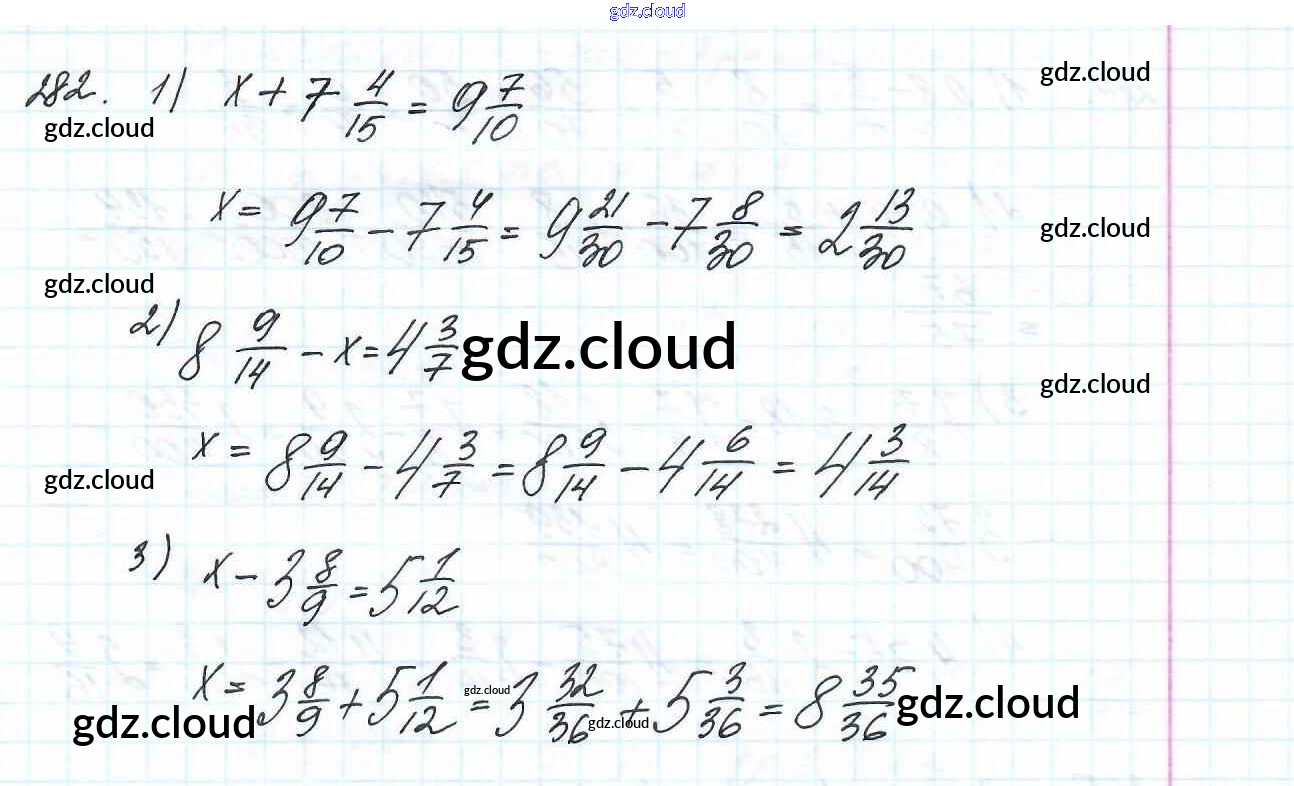 gdz.cloud
282. 1) x + 7 4/15 = 9 7/10
gdz.cloud
gdz.cloud
x = 9 7/10 - 7 4/15 = 9 21/30 - 7 8/30 = 2 13/30
gdz.cloud
gdz.cloud
2) 8 9/14 - x = 4 3/7
gdz.cloud
gdz.cloud
x = 8 9/14 - 4 3/7 = 8 9/14 - 4 6/14 = 4 3/14
gdz.cloud
3) x - 3 8/9 = 5 1/12
x = 3 8/9 + 5 1/12 = 3 32/36 + 5 3/36 = 8 35/36
gdz.cloud
gdz.cloud
gdz.cloud
gdz.cloud